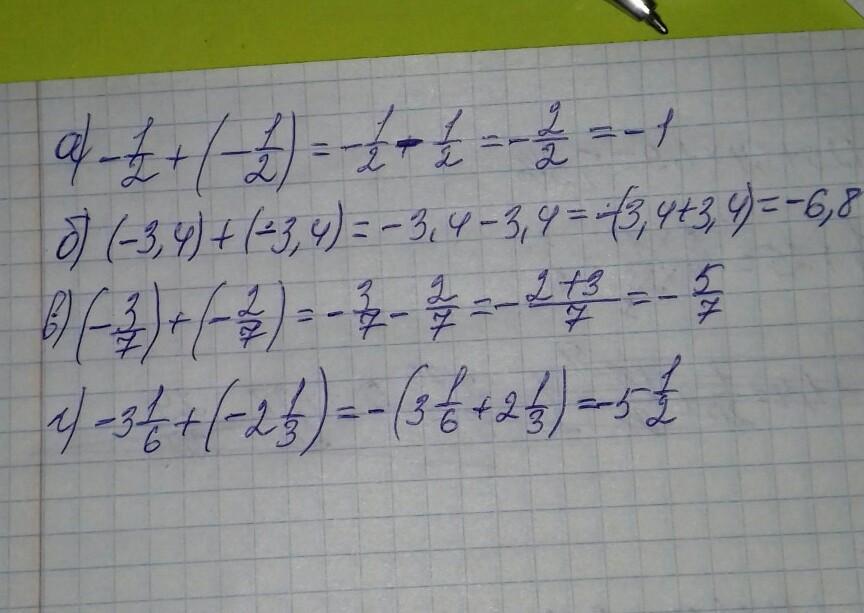 а) -1/2 + (-1/2) = -1/2 - 1/2 = -2/2 = -1
б) (-3,4) + (-3,4) = -3,4 - 3,4 = -(3,4+3,4) = -6,8
в) (-3/7) + (-2/7) = -3/7 - 2/7 = - 2+3/7 = - 5/7
г) -3 1/6 + (-2 1/3) = -(3 1/6 + 2 1/3) = -5 1/2